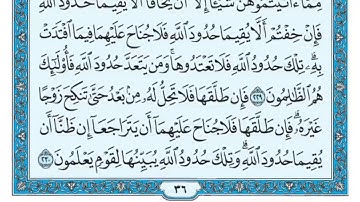 مِمَّآ ءَاتَيْتُمُوهُنَّ شَيْـًٔا إِلَّآ أَن يَخَافَآ أَلَّا يُقِيمَا حُدُودَ ٱللَّهِ
فَإِنْ خِفْتُمْ أَلَّا يُقِيمَا حُدُودَ ٱللَّهِ فَلَا جُنَاحَ عَلَيْهِمَا فِيمَا ٱفْتَدَتْ
بِهِۦۗ تِلْكَ حُدُودُ ٱللَّهِ فَلَا تَعْتَدُوهَاۚ وَمَن يَتَعَدَّ حُدُودَ ٱللَّهِ فَأُو۟لَـٰٓئِكَ
هُمُ ٱلظَّـٰلِمُونَ ٢٢٩ فَإِن طَلَّقَهَا فَلَا تَحِلُّ لَهُۥ مِنۢ بَعْدُ حَتَّىٰ تَنكِحَ زَوْجًا
غَيْرَهُۥۗ فَإِن طَلَّقَهَا فَلَا جُنَاحَ عَلَيْهِمَآ أَن يَتَرَاجَعَآ إِن ظَنَّآ أَن
يُقِيمَا حُدُودَ ٱللَّهِۗ وَتِلْكَ حُدُودُ ٱللَّهِ يُبَيِّنُهَا لِقَوْمٍ يَعْلَمُونَ ٢٣٠
٣٦